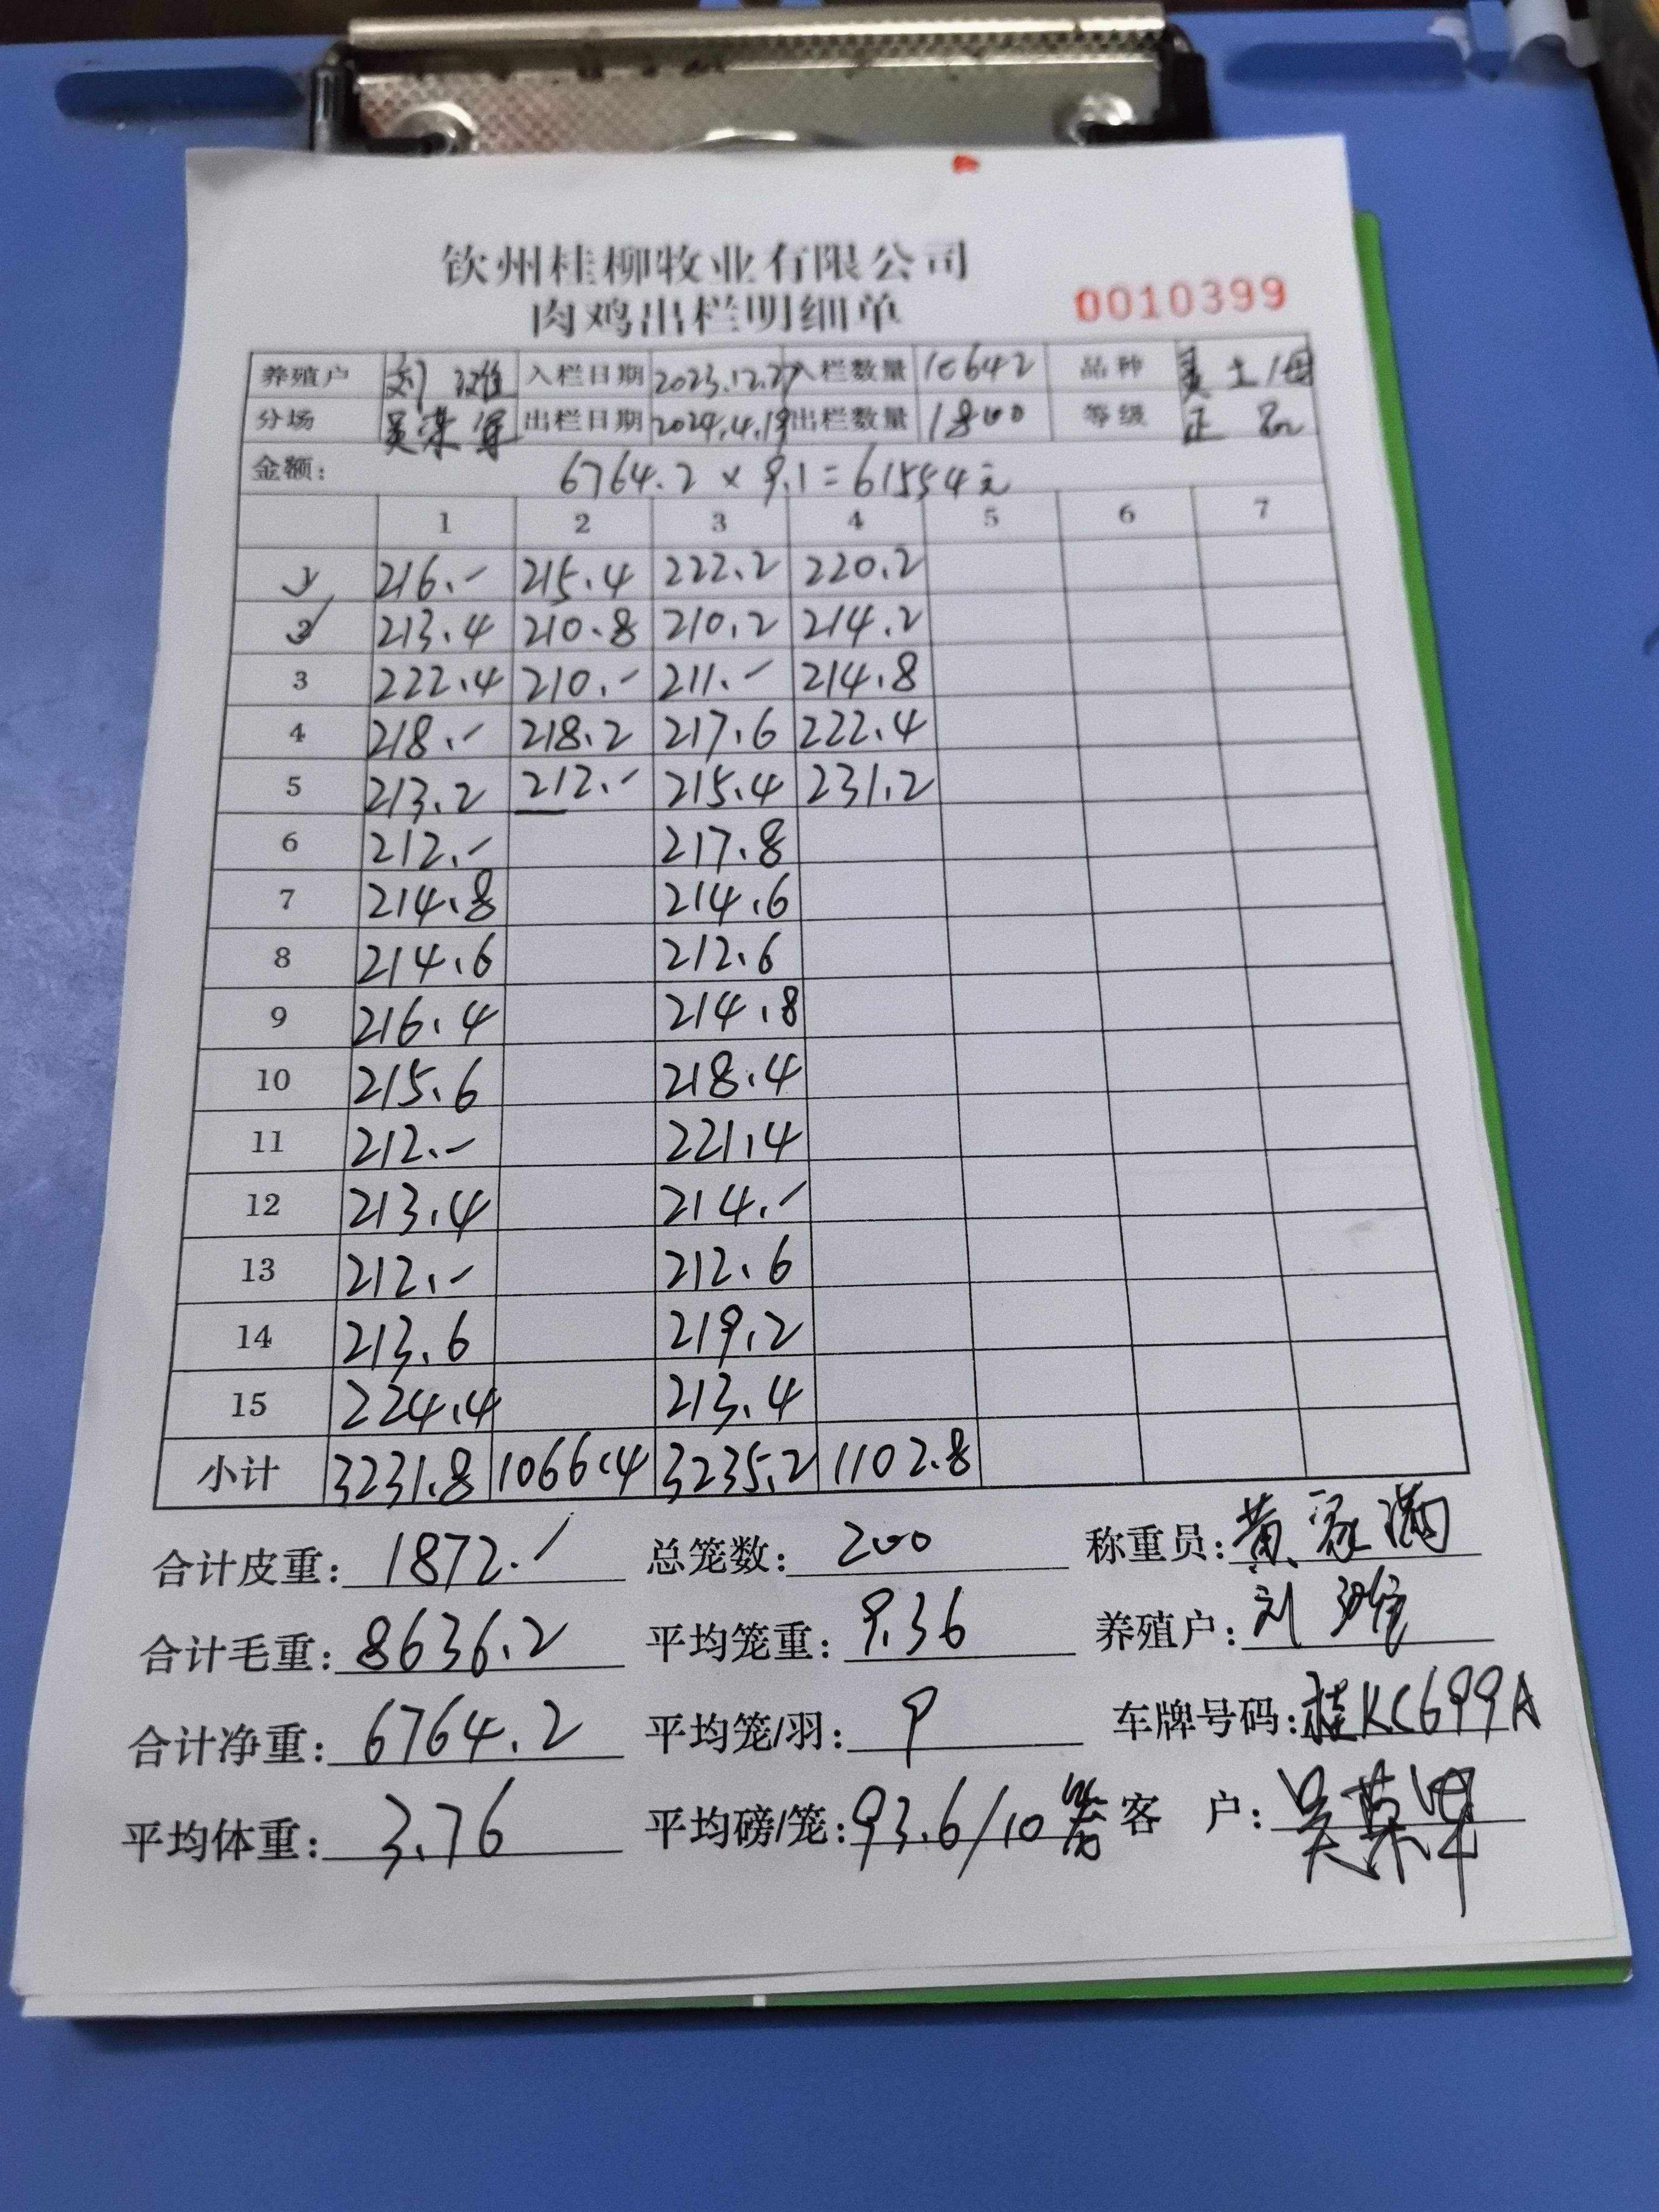 钦州桂柳牧业有限公司
肉鸡出栏明细单 0010399
养殖户 刘 入栏日期 2023.12.27 入栏数量 10642 品种 土
分场 吴荣 出栏日期 2024.4.19 出栏数量 1800 等级 正品
金额: 6764.2 × 9.1 = 61554元
1 2 3 4 5 6 7
1 216.- 215.4 222.2 220.2
2 213.4 210.8 210.2 214.2
3 222.4 210.- 211.- 214.8
4 218.- 218.2 217.6 222.4
5 213.2 212.- 215.4 231.2
6 212.- 217.8
7 214.8 214.6
8 214.6 212.6
9 216.4 214.8
10 215.6 218.4
11 212.- 221.4
12 213.4 214.-
13 212.- 212.6
14 213.6 219.2
15 224.4 213.4
小计 3231.8 1066.4 3235.2 1102.8
合计皮重: 1872.- 总笼数: 200 称重员: 黄家满
合计毛重: 8636.2 平均笼重: 9.36 养殖户: 刘
合计净重: 6764.2 平均笼/羽: 9 车牌号码: 桂KC699A
平均体重: 3.76 平均磅/笼: 93.6/10 客 户: 吴荣